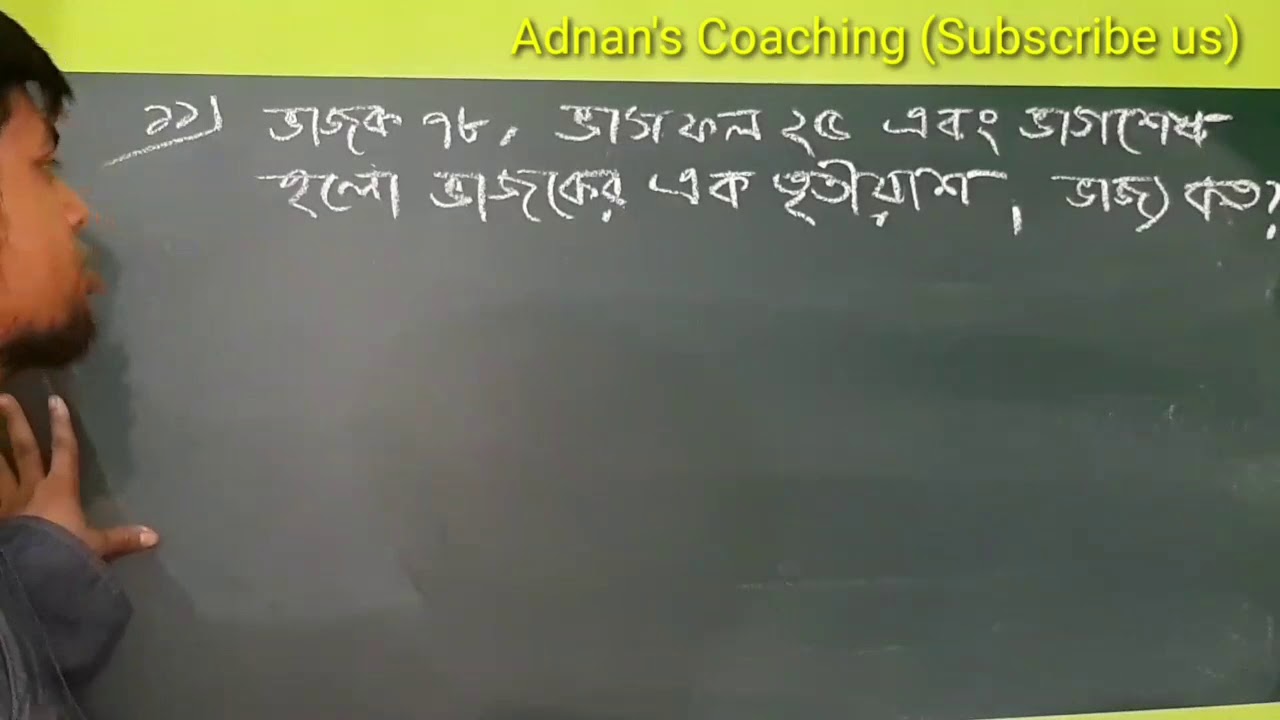 Adnan's Coaching (Subscribe us)
১১) ভাজক ৭৮, ভাগফল ২৫ এবং ভাগশেষ
হলো ভাজকের এক তৃতীয়াশ, ভাজ্য কত?